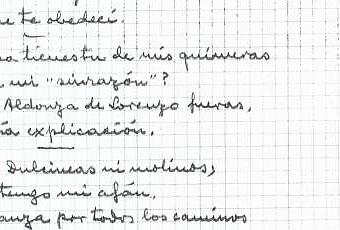 ue te obedecí.
tienes tu de mis quimeras
mi "sinrazón"?
Aldonza de Lorenzo fueras,
ía explicación.
Dulcineas ni molinos,
tengo mi afán,
anza por todos los caminos